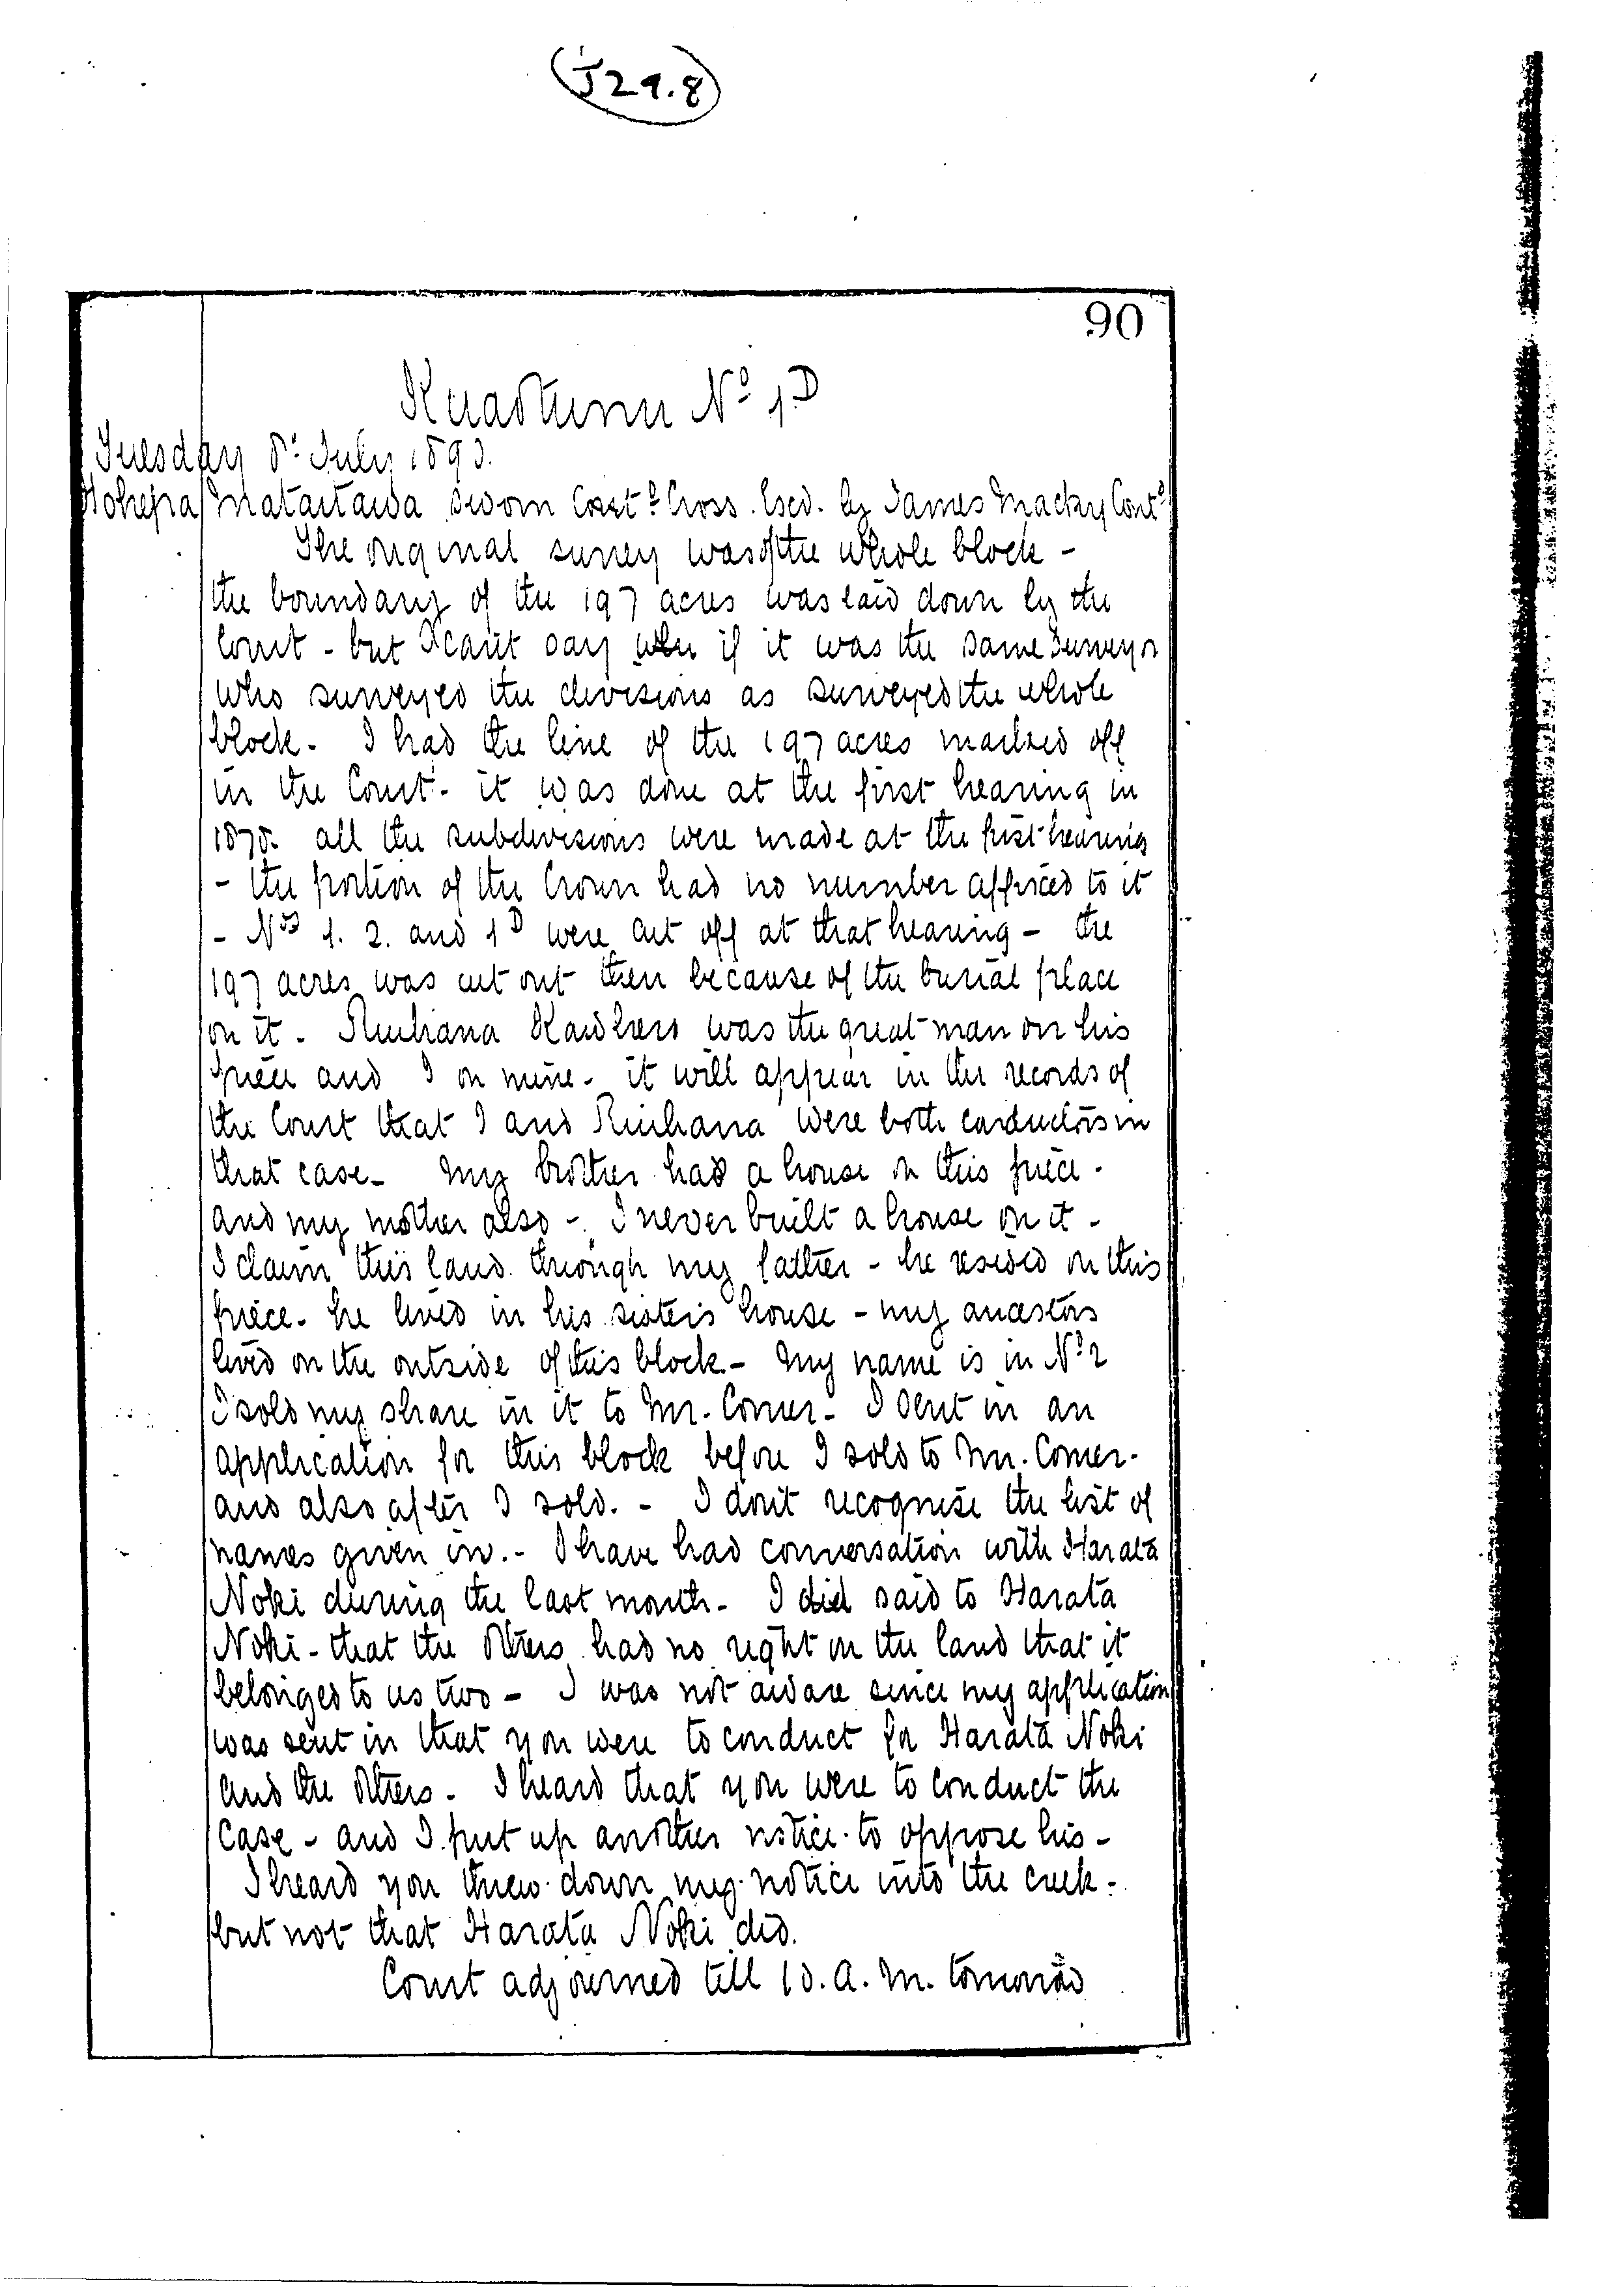 J29.8
90
Kuaotunu No 1D
Tuesday 8th July 1893.
Hohepa Mataitaua sworn Cross Exd. by James Mackay Contd
The original survey was of the whole block -
the boundary of the 197 acres was laid down by the
Court - but I can't say if it was the same surveyor
who surveyed the divisions as surveyed the whole
block. I had the line of the 197 acres marked off
in the Court - it was done at the first hearing in
1878. all the subdivisions were made at the first hearing
- the portion of the Crown had no number affixed to it
- Nos 1. 2. and 1D were cut off at that hearing - the
197 acres was cut out then because of the burial place
on it. Ruihana Kawhero was the great man on his
piece and I on mine - it will appear in the records of
the Court that I and Ruihana were both conductors in
that case - My brother had a house on this piece -
and my mother also - I never built a house on it -
I claim this land through my father - he resided on this
piece - he lived in his sisters house - my ancestors
lived on the outside of this block - My name is in No 2
I sold my share in it to Mr. Comer - I sent in an
application for this block before I sold to Mr. Comer -
and also after I sold. - I don't recognise the list of
names given in. - I have had conversation with Harata
Noki during the last month - I did said to Harata
Noki - that the others had no right on the land that it
belonged to us two - I was not aware since my application
was sent in that you were to conduct for Harata Noki
and the others - I heard that you were to conduct the
case - and I put up another notice to oppose his -
I heard you threw down my notice into the creek -
but not that Harata Noki did.
Court adjourned till 10. A. M. tomorrow